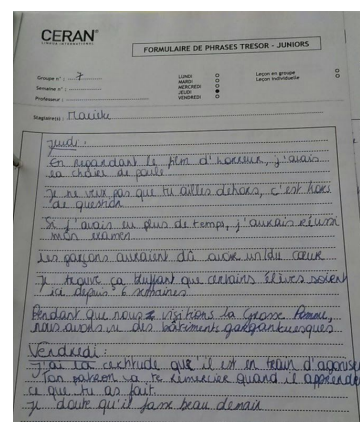 CERAN®
FORMULAIRE DE PHRASES TRESOR - JUNIORS
Groupe n° : 7
Semaine n° :
Professeur :
LUNDI
MARDI
MERCREDI
JEUDI
VENDREDI
Leçon en groupe
Leçon individuelle
Stagiaire(s) :
jeudi :
En regardant le film d'horreur, j'avais
la chair de poule
Je ne veux pas que tu ailles dehors, c'est hors
de question
Si j'avais eu plus de temps, j'aurais réussi
mon examen
Les garçons auraient dû avoir un
coeur
Je trouve ça bluffant que certains élèves soient
ici depuis 6 semaines
Pendant que nous visitions la Grosse Pomme,
nous avons vu des bâtiments gargantuesques
Vendredi :
J'ai la certitude qu'il est en train d'agoniser
Ton patron va te remercier quand il apprendra
ce que tu as fait.
Je doute qu'il fasse beau demain